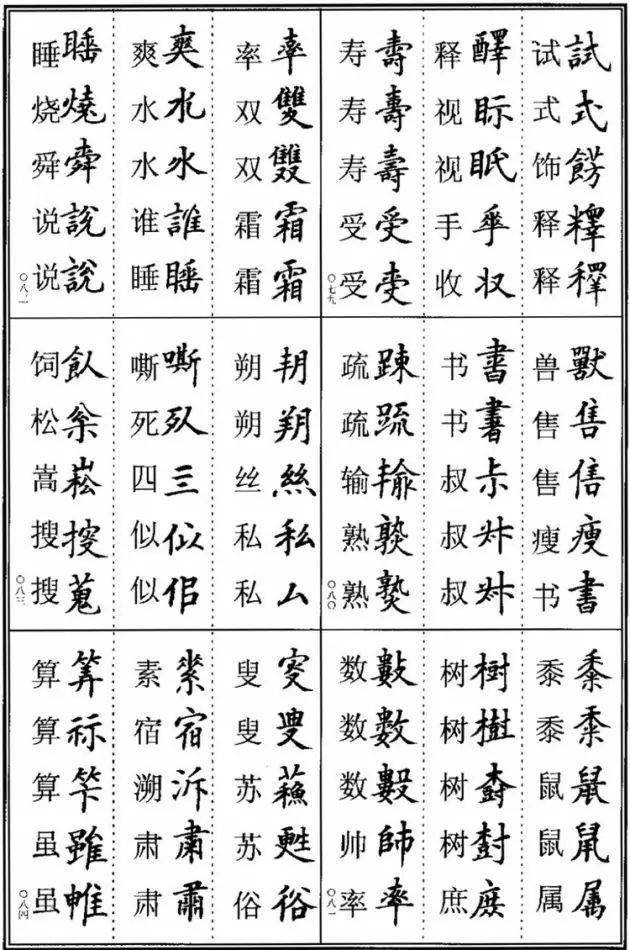 试試
式式
饰餝
释
释釋
释醳
视眎
视眡
手
收収
寿壽
寿
寿壽
受受
受
〇七九
兽獸
售售
售
瘦瘦
书書
书書
书
叔尗
叔
叔
疏踈
疏疏
输
熟
熟
〇八〇
黍黍
黍
鼠鼠
鼠
属属
树樹
树樹
树
树尌
庶
数
数數
数
帅師
率率
〇八一
率率
双
双雙
霜霜
霜霜
爽爽
水
水水
谁誰
睡睡
睡
烧燒
舜舜
说說
说說
〇八二
朔
朔朔
丝絲
私私
私厶
嘶嘶
死
四
似似
似佀
饲飤
松枀
嵩崧
搜
搜蒐
〇八三
叟
叟
苏蘓
苏甦
俗俗
素
宿宿
溯泝
肃肅
肃
算筭
算祘
算
虽雖
虽
〇八四